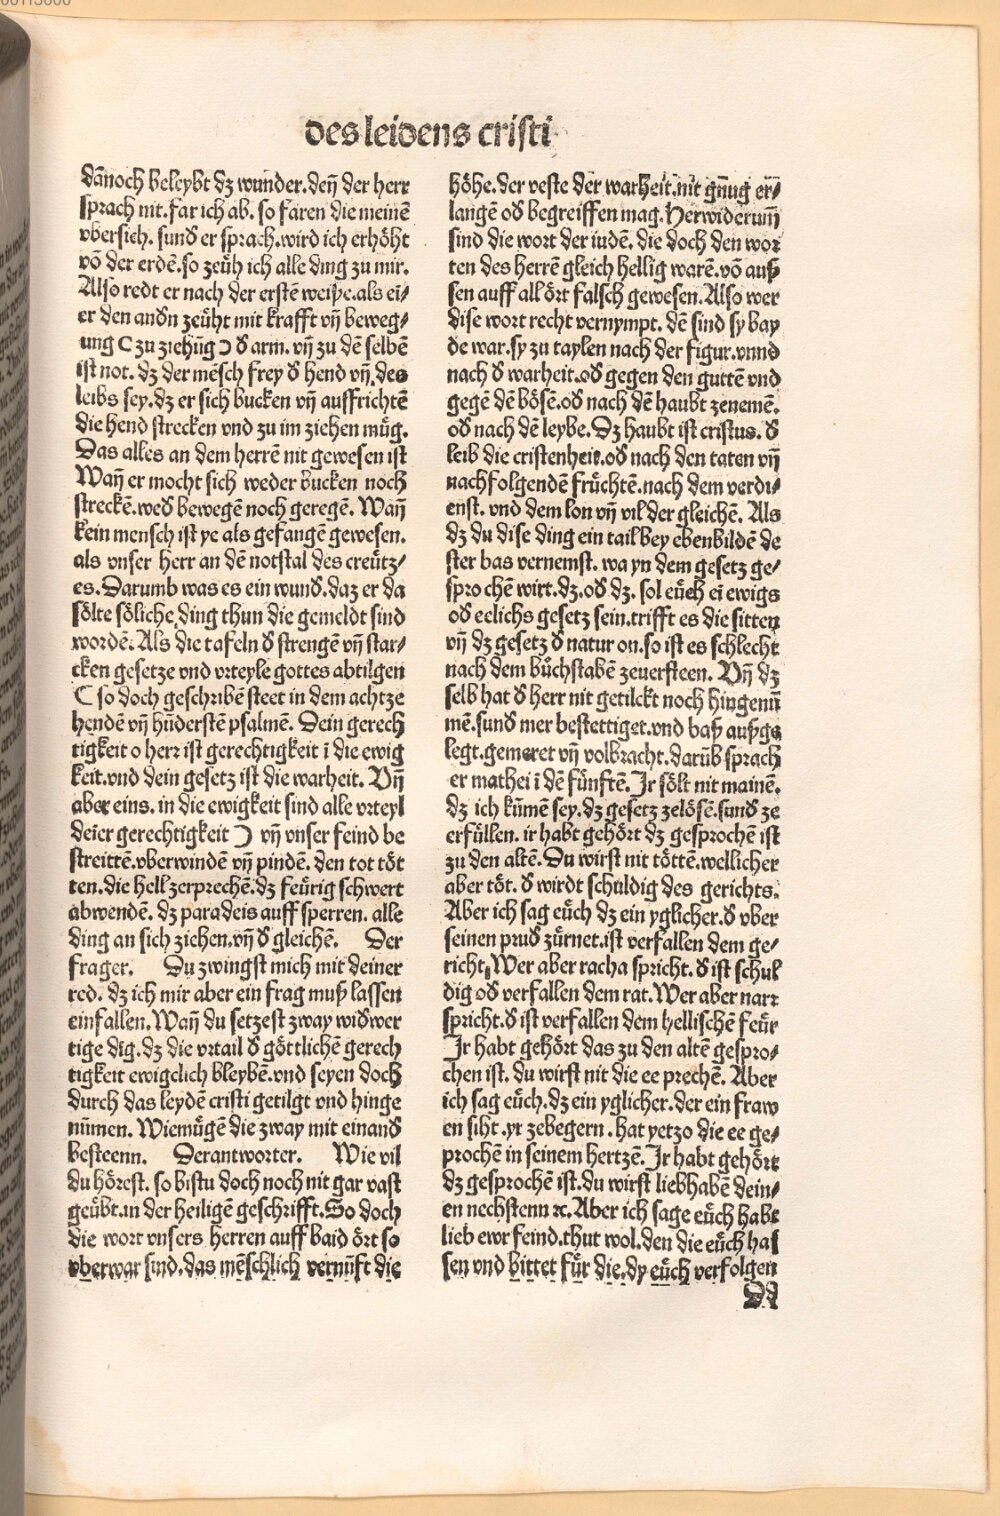 des leidens cristi
dānoch beleybt dz wunder. deñ der herr
sprach nit. far ich ab. so faren die meinē
vbersich. sund er sprach. wird ich erhöht
vō der erdē. so zeüh ich alle ding zu mir.
Also redt er nach der erstē weiße. als ei/
er den andn zeüht mit krafft vñ beweg/
ung ( zu ziehūg ) d arm. vñ zu dē selbē
ist not. dz der mēsch frey d hend vñ des
leibs sey. dz er sich bucken vñ auffrichtē
die hend strecken vnd zu im ziehen müg.
Das alles an dem herrē nit gewesen ist
Wañ er mocht sich weder bucken noch
streckē. wed bewegē noch geregē. Wañ
kein mensch ist ye als gefangē gewesen.
als vnser herr an dē notstal des creütz/
es. Darumb was es ein wund. daz er da
sölte söliche ding thun die gemeldt sind
wordē. Als die tafeln d strengē vñ star/
cken gesetze vnd vrteyle gottes abtilgen
( so doch geschribē steet in dem achtze
hendē vñ hūderstē psalmē. Dein gerech
tigkeit o herr ist gerechtigkeit ī die ewig
keit. vnd dein gesetz ist die warheit. Vñ
aber eins. in die ewigkeit sind alle vrteyl
deīer gerechtigkeit ) vñ vnser feind be
streittē. vberwindē vñ pindē. den tot töt
ten. die hell zerprechē. dz feürig schwert
abwendē. dz paradeis auff sperren. alle
ding an sich ziehen. vñ d gleichē. Der
frager. Du zwingst mich mit deiner
red. dz ich mir aber ein frag muß lassen
einfallen. Wañ du setzest zway widwer
tige dīg. dz die vrtail d göttlichē gerech
tigkeit ewigclich bleybē. vnd seyen doch
durch das leydē cristi getilgt vnd hinge
nūmen. Wiemügē die zway mit einand
besteenn. Derantworter. Wie vil
du hörest. so bistu doch noch nit gar vast
geübt. in der heiligē geschrifft. So doch
die wort vnsers herren auff baid ört so
vberwar sind. das mēschlich vernūft die
höhe. der veste der warheit. nit gnūg er/
langē od begreiffen mag. Herwiderum̄
sind die wort der iudē. die doch den wor
ten des herrē gleich hellig warē. vō auß
sen auff all ört falsch gewesen. Also wer
dise wort recht vernympt. dē sind sy bay
de war. sy zu taylen nach der figur. vnnd
nach d warheit. od gegen den guttē vnd
gegē dē bösē. od nach dē haubt zenemē.
od nach dē leybe. Dz haubt ist cristus. d
leib die cristenheit. od nach den taten vñ
nachfolgendē früchtē. nach dem verdi/
enst. vnd dem lon vñ vil der gleichē. Als
dz du dise ding ein tail bey ebenbildē de
ster bas vernemst. wa yn dem gesetz ge/
sprochē wirt. dz. od dz. sol eüch ei ewigs
od eelichs gesetz sein. trifft es die sitten
vñ dz gesetz d natur on. so ist es schlecht
nach dem büchstabē zeuersteen. Vñ dz
selb hat d herr nit getilckt noch hingenū
mē. sund mer bestettiget. vnd baß außge
legt. gemeret vñ volbracht. darūb sprach
er mathei ī dē fünftē. Jr sölt nit mainē.
dz ich kūmē sey. dz gesetz zelösē. sund ze
erfüllen. ir habt gehört dz gesprochē ist
zu den altē. Du wirst nit töttē. wellicher
aber töt. d wirdt schuldig des gerichts.
Aber ich sag eüch dz ein yglicher. d vber
seinen prud zürnet. ist verfallen dem ge/
richt. Wer aber racha spricht. d ist schul
dig od verfallen dem rat. Wer aber narr
spricht. d ist verfallen dem hellischē feür
Jr habt gehört das zu den altē gespro/
chen ist. du wirst nit die ee prechē. Aber
ich sag eüch. dz ein yglicher. der ein fraw
en siht. yr zebegern. hat yetzo die ee ge/
prochē in seinem hertzē. Jr habt gehört
dz gesprochē ist. du wirst liebhabē dein/
en nechstenn ꝛc. Aber ich sage eüch habt
lieb ewr feind. thut wol. den die eüch has
sen vnd bittet für die. dy eüch verfolgen